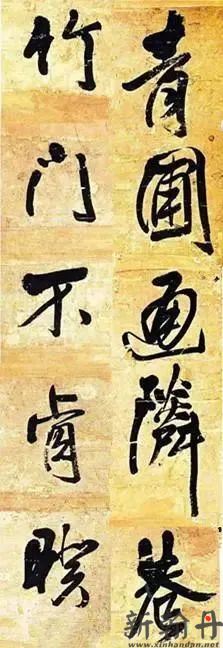 青圃通隣巷
竹門不肯暌
新翰丹
www.xinhandan.net